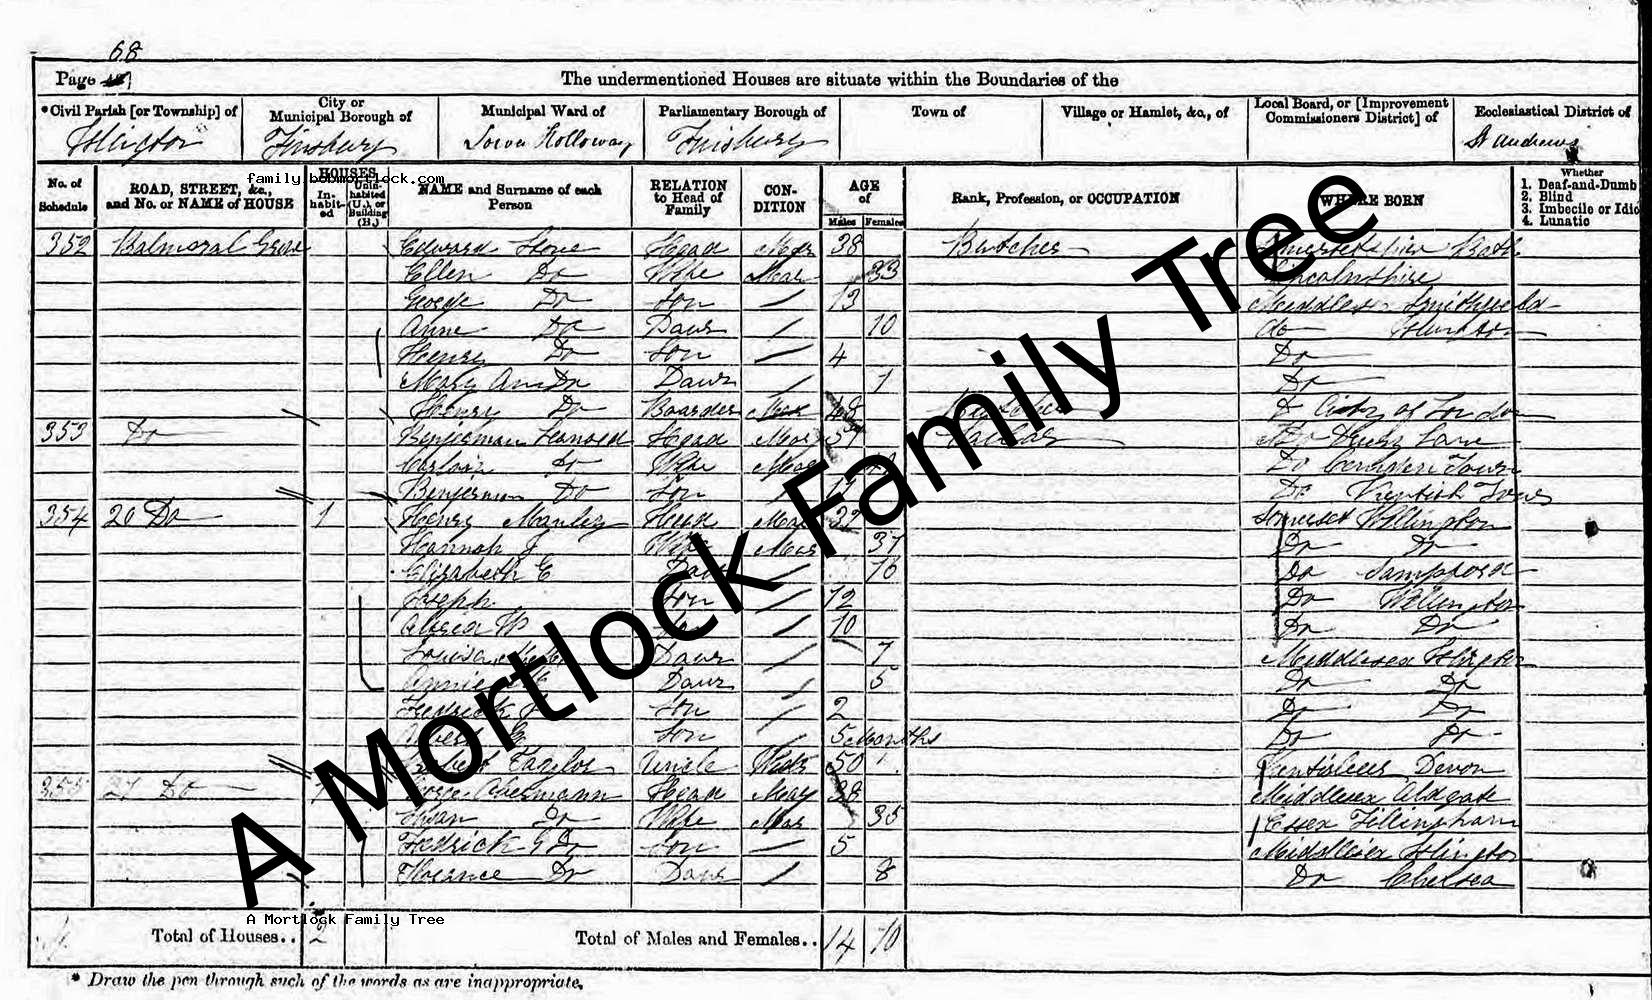 68
Page
The undermentioned Houses are situate within the Boundaries of the
*Civil Parish [or Township] of
City or Municipal Borough of
Municipal Ward of
Parliamentary Borough of
Town of
Village or Hamlet, &c., of
Local Board, or [Improvement Commissioners District] of
Ecclesiastical District of
Islington Finsbury Lower Holloway Finsbury St Andrews
family.bobmortlock.com
No. of Schedule
ROAD, STREET, &c., and No. or NAME of HOUSE
HOUSES
In-habit-ed
Unin-habited (U.), or Building (B.)
NAME and Surname of each Person
RELATION to Head of Family
CON-DITION
AGE of
Males Females
Rank, Profession, or OCCUPATION
WHERE BORN
Whether
1. Deaf-and-Dumb
2. Blind
3. Imbecile or Idio
4. Lunatic
352 Balmoral Grove Edward Head Mar 38 Butcher Bath
Ellen Do Wife Mar 33 Lincolnshire
George Do Son 13 Middlesex Smithfield
Anne Do Daur 10 do Islington
Henry Do Son 4 Do
Mary Ann Do Daur 1 Do
Henry Do Boarder 48 City of London
353 Do Benjerman Head Mar Drury Lane
Do Wife Mar Do Camden Town
Benjerman Do Son Do Kentish Town
354 20 Do 1 Henry Manley Head Mar 39 Somerset Wellington
Hannah J Wife Mar 37 Do Do
Elizabeth E Daur 16 Do Sampford
Joseph Son 12 Do Wellington
W Son 10 Do Do
Louisa Daur 7 Middlesex Islington
Annie Daur 5 Do Do
Fredrick Son 2 Do Do
Albert Son 5 Months Do Do
Taylor Uncle 50 Devon
355 21 Do 1 George Head Mar 38 Middlesex Aldgate
Susan Do Wife Mar 35 Essex Tillingham
Fredrick G Do Son 5 Middlesex Islington
Florance Do Daur 8 Do Chelsea
A Mortlock Family Tree
A Mortlock Family Tree
Total of Houses.. 2 Total of Males and Females.. 14 10
* Draw the pen through such of the words as are inappropriate.